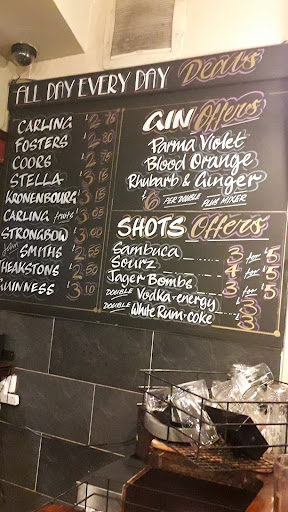 ALL DAY EVERY DAY Deals
CARLING £2 75
FOSTERS £2 80
COORS £2 75
STELLA £3 15
KRONENBOURG £3 15
CARLING fruits £3
STRONGBOW £3
John SMITHS £2 55
THEAKSTONS £2 80
GUINNESS £3 10
GIN Offers
Parma Violet
Blood Orange
Rhubarb & Ginger
£6 PER DOUBLE PLUS MIXER
SHOTS Offers
Sambuca 3 for £5
Sourz 4 for £5
Jager Bombs 3 for £5
DOUBLE Vodka-energy
DOUBLE White Rum-coke